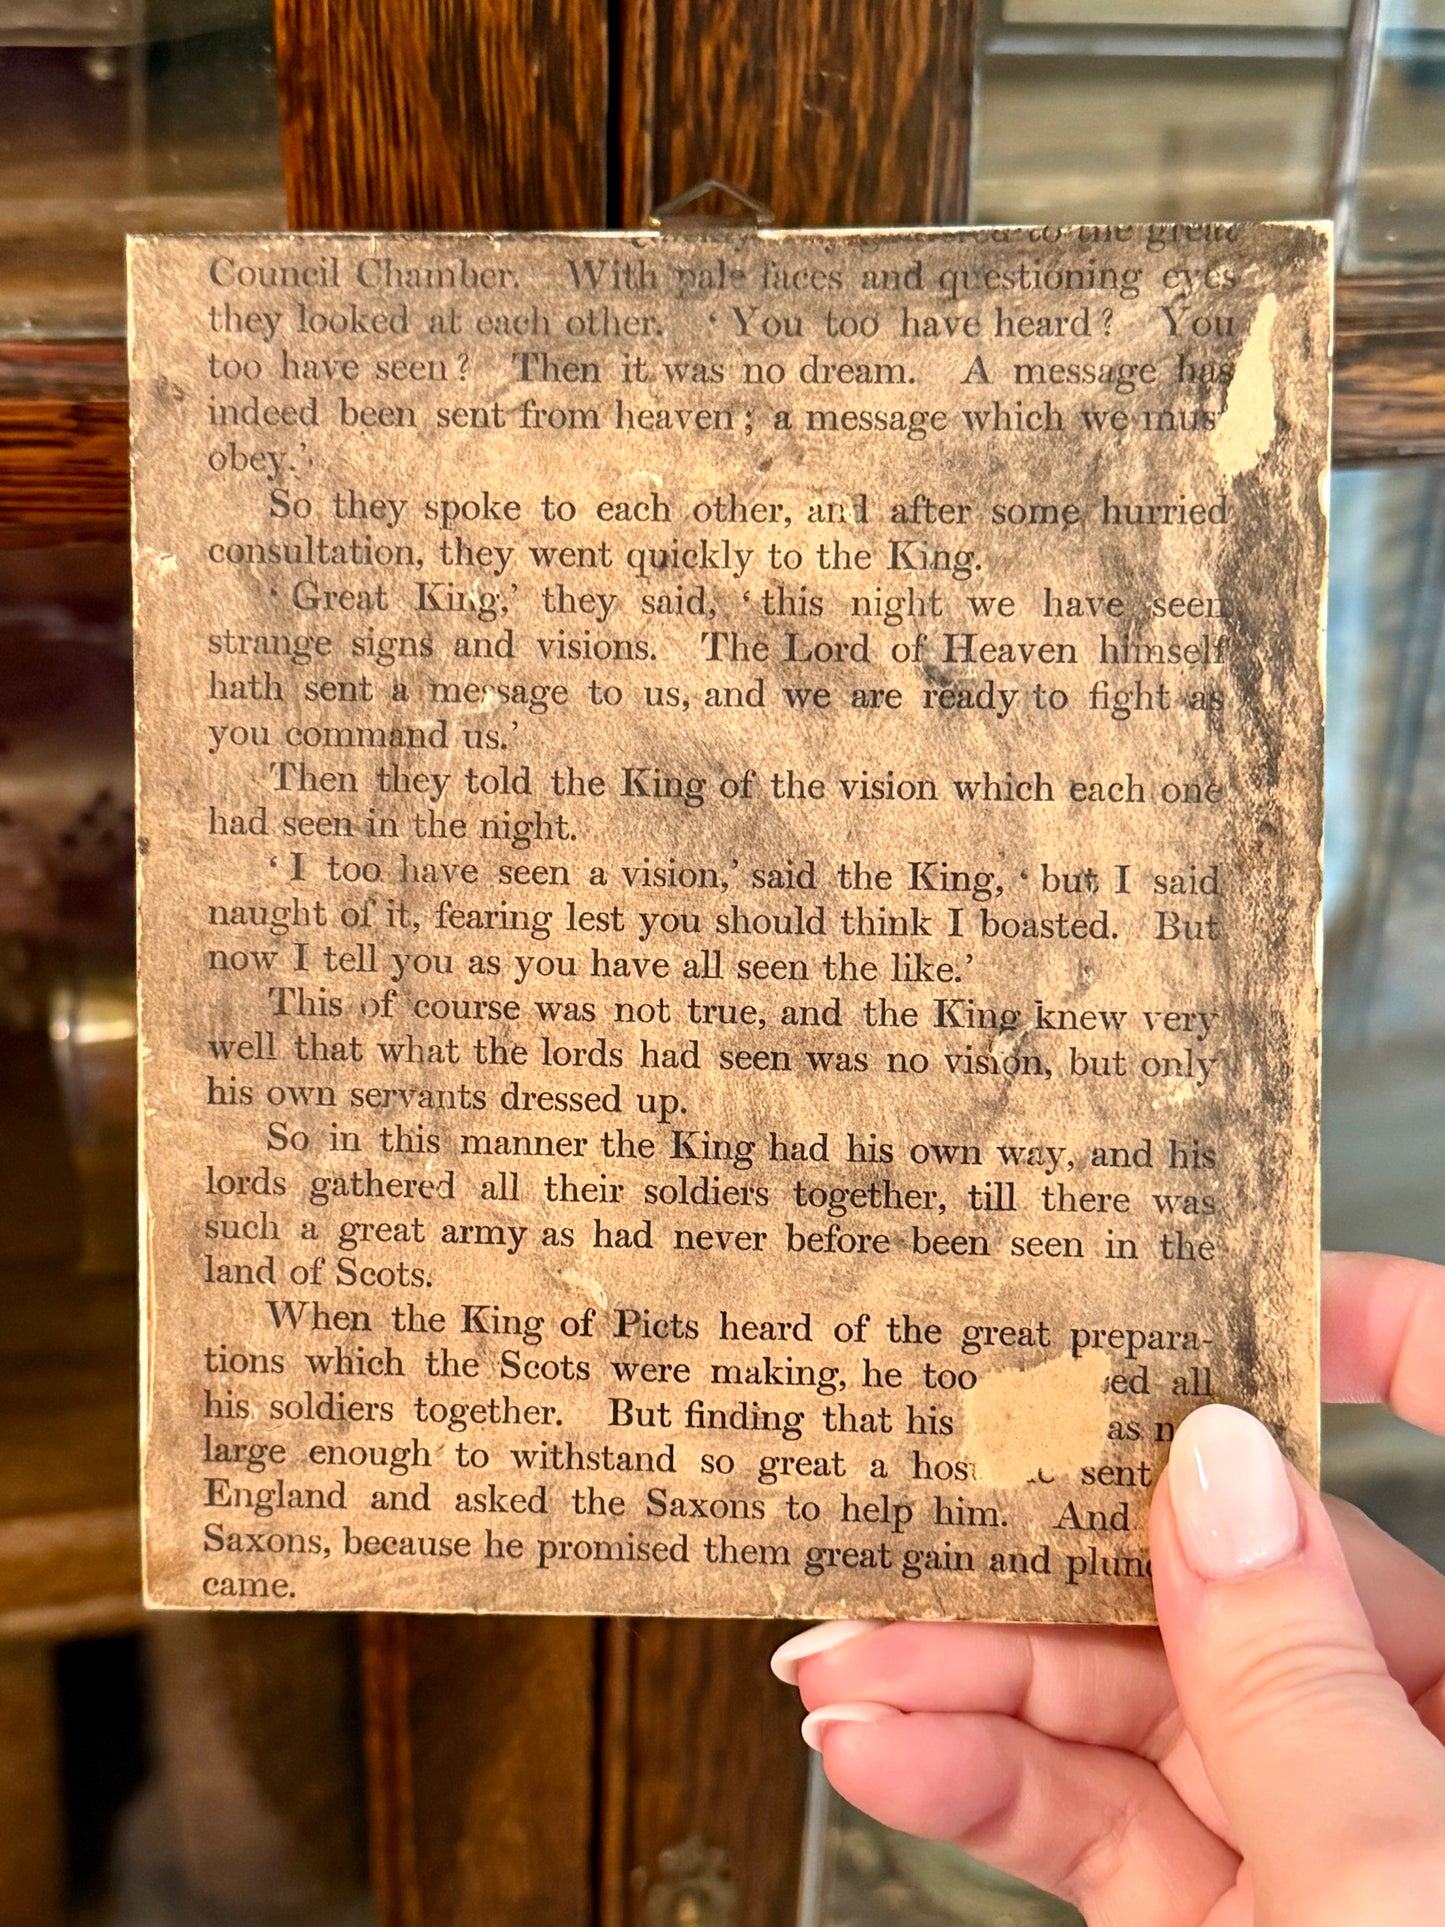 to the great
Council Chamber. With pale faces and questioning eyes
they looked at each other. ‘You too have heard? You
too have seen? Then it was no dream. A message has
indeed been sent from heaven; a message which we mus
obey.’
So they spoke to each other, and after some hurried
consultation, they went quickly to the King.
‘Great King,’ they said, ‘this night we have seen
strange signs and visions. The Lord of Heaven himself
hath sent a message to us, and we are ready to fight as
you command us.’
Then they told the King of the vision which each one
had seen in the night.
‘I too have seen a vision,’ said the King, ‘but I said
naught of it, fearing lest you should think I boasted. But
now I tell you as you have all seen the like.’
This of course was not true, and the King knew very
well that what the lords had seen was no vision, but only
his own servants dressed up.
So in this manner the King had his own way, and his
lords gathered all their soldiers together, till there was
such a great army as had never before been seen in the
land of Scots.
When the King of Picts heard of the great prepara-
tions which the Scots were making, he too ed all
his soldiers together. But finding that his as
large enough to withstand so great a host sent
England and asked the Saxons to help him. And
Saxons, because he promised them great gain and
came.